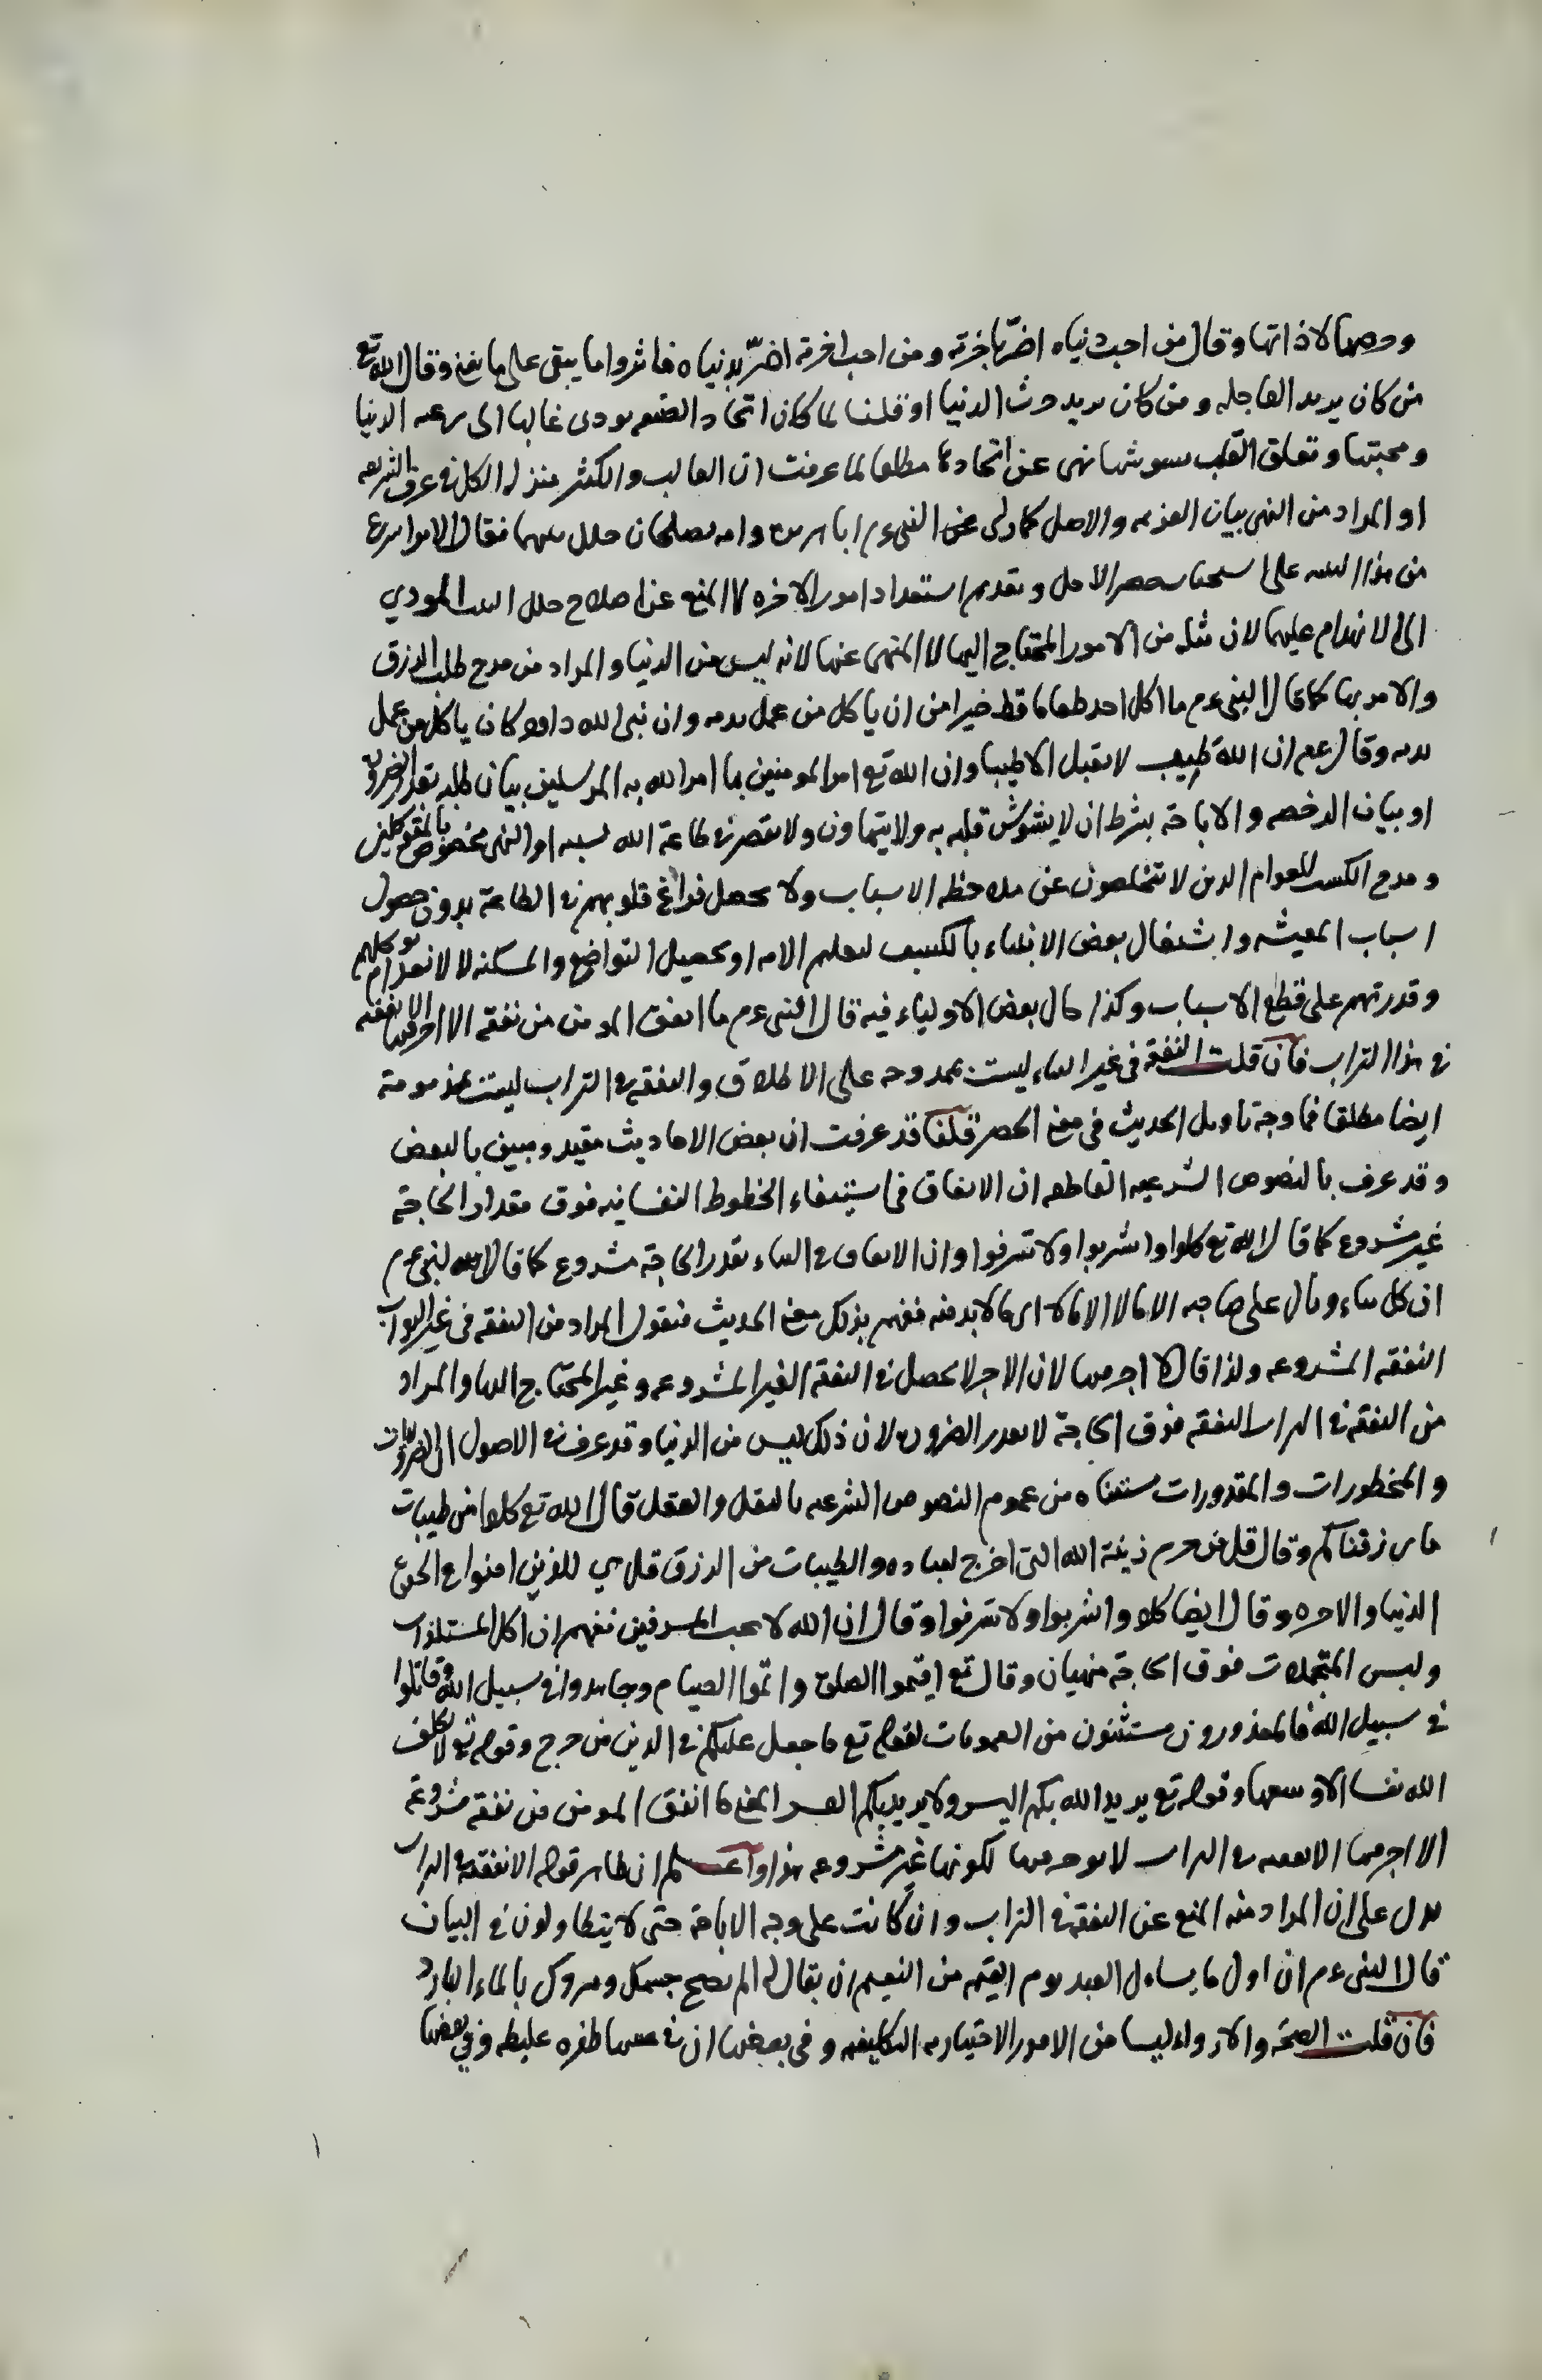 وحرصها لا ذاتها وقال من احب دنياه اضرّ باخرته ومن احب اخرته اضرّ بدنياه فاثروا ما يبقى على ما يفنى وقال الله تع
من كان يريد العاجله ومن كان يريد حرث الدنيا او قلنا لما كان اتخاد الضيعه يودى غالبا الى رغبه الدنيا
ومحبتها وتعلق القلب نهى عن اتخادها مطلقا لما عرفت ان الغالب والكثير منزله الكل فى عرف الشريعه
او المراد من النهى بيان العزيمه والاصل كما روى عن النبى عم وامه يصلحان خلل فقال الامر اسرع
من هذا على الاجل وتقديم استعداد امور الاخره لا المنع عن اصلاح خلل البيت المودي
الى الانهدام عليهما لان مثله من الامور المحتاج اليها لا المنهى عنها لانه ليس من الدنيا والمراد من مدح طلب الرزق
والامر بها كما قال النبى عم ما اكل احد طعاما قط خيرا من ان ياكل من عمل يديه وان نبى الله داود كان ياكل من عمل
يديه وقال عم ان الله طيب لا يقبل الا طيبا وان الله تع امر المومنين بما امر الله به المرسلين بيان طلبه بقدر الضرورة
او بيان الرخصه والاباحة بشرط ان لا يشوش قلبه به ولا يتهاون ولا يقصر فى طاعة الله بسببه او النهى مخصوص بالمتوكلين
ومدح الكسب للعوام الدين لا يتخلصون عن ملاحظه الاسباب ولا يحصل فراغ قلوبهم فى الطاعة بدون حصول
اسباب المعيشه واشتغال بعض الانبياء بالكسب لتعليم الامه او تحصيل التواضع والمسكنه لا لانعدام توكلهم
وقدرتهم على قطع الاسباب وكذا حال بعض الاولياء فيه قال النبى عم ما انفق المومن من نفقه الا اجر فيها الا نفقته
فى هذا التراب فان قلت النفقة فى غير البناء ليست بممدوحه على الاطلاق والنفقه فى التراب ليست بمذمومة
ايضا مطلقا فما وجه تاويل الحديث فى معنى الحصر قلنا قد عرفت ان بعض الاحاديث مقيد ومبين بالبعض
وقد عرف بالنصوص الشرعيه القاطعه ان الانفاق فى استيفاء الحظوظ النفسانيه فوق مقدار الحاجة
غير مشروع كما قال الله تع كلوا واشربوا ولا تسرفوا وان الانفاق فى البناء بقدر الحاجة مشروع كما قال النبى عم
ان كل بناء وبال على صاحبه الا ما لا الا ما لا اى ما لا بد منه ففهم بذلك معنى الحديث فنقول المراد من النفقه فى غير التراب
النفقه المشروعه ولذا قال الا اجر فيها لان الاجر لا يحصل فى النفقه الغير المشروعه وغير المحتاج اليها والمراد
من النفقه فى التراب النفقه فوق الحاجة لا بقدر الضروره لان ذلك ليس من الدنيا وقد عرف فى الاصول ان الضروريات
والمحظورات والمقدورات مستثناه من عموم النصوص الشرعيه بالنقل والعقل قال الله تع كلوا من طيبات
ما رزقناكم وقال قل من حرم زينة الله التى اخرج لعباده والطيبات من الرزق قل هى للذين امنوا فى الحيوة
الدنيا والاخره وقال ايضا كلوا واشربوا ولا تسرفوا وقال ان الله لا يحب المسرفين ففهم ان اكل المستلذات
ولبس المتجملات فوق الحاجة منهيان وقال تع اقيموا الصلوة واتموا الصيام وجاهدوا فى سبيل الله وقاتلوا
فى سبيل الله فالمعذورون مستثنون من العمومات لقوله تع ما جعل عليكم فى الدين من حرج وقوله تع لا يكلف
الله نفسا الا وسعها وقوله تع يريد الله بكم اليسر ولا يريد بكم العسر المعنى ما انفق المومن من نفقه مشروعة
الا اجر فيها الا نفقته فى التراب لا يوجر فيها لكونها غير مشروعه هذا واعلم ان ظاهر قوله الا نفقته فى التراب
يدل على ان المراد منه المنع عن النفقه فى التراب وان كانت على وجه الاباحة حتى لا يتطاولون فى البيان
قال النبى عم ان اول ما يساءل العبد يوم القيمه من النعيم ان يقال له الم نصح جسمك ونروك بالماء البارد
فان قلت الصحة والارواء ليسا من الامور الاختياريه التكليفيه وفى بعضها ان فى ظفره غليظه وفى بعضها